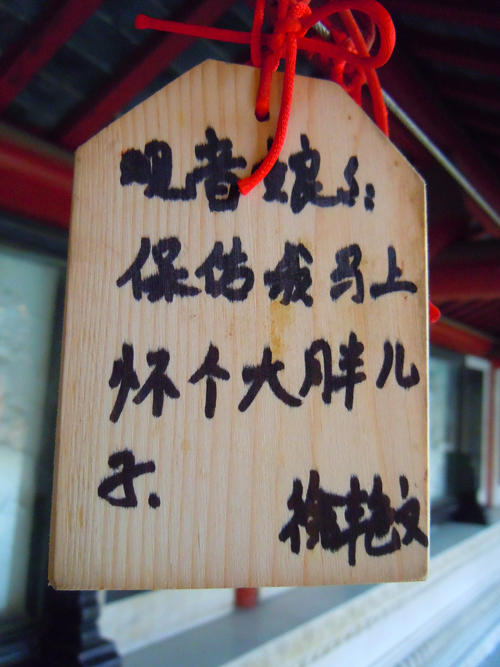 观音娘々:
保佑我马上
怀个大胖儿
子.
徐艳文